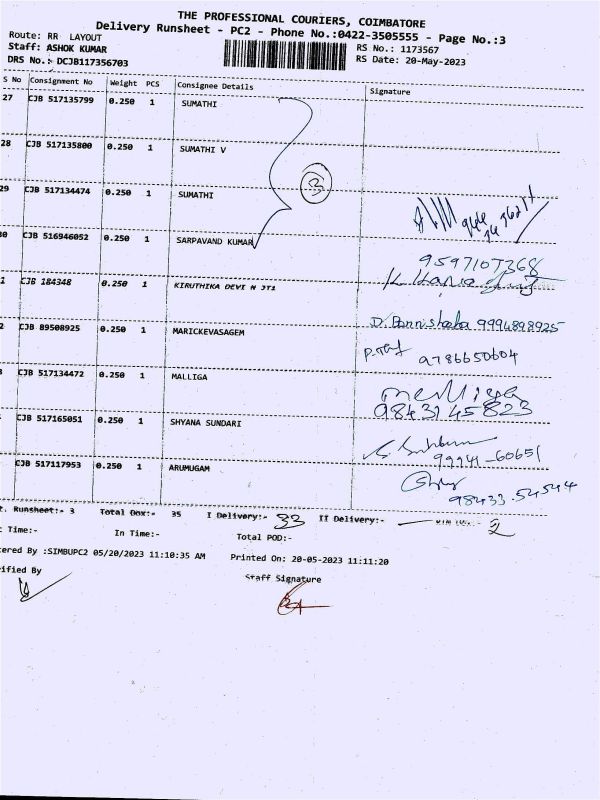 THE PROFESSIONAL COURIERS, COIMBATORE
Delivery Runsheet - PC2 - Phone No.:0422-3505555 - Page No.:3
Route: RR LAYOUT
Staff: ASHOK KUMAR RS No.: 1173567
DRS No.: DCJB117356703 RS Date: 20-May-2023
S No Consignment No Weight PCS Consignee Details Signature
27 CJB 517135799 0.250 1 SUMATHI
28 CJB 517135800 0.250 1 SUMATHI V
29 CJB 517134474 0.250 1 SUMATHI
3
0 CJB 516946052 0.250 1 SARPAVAND KUMAR
9597107368
1 CJB 184348 0.250 1 KIRUTHIKA DEVI N JT1
2 CJB 89508925 0.250 1 MARICKEVASAGEM 9994898925
9786650604
CJB 517134472 0.250 1 MALLIGA
9843145823
CJB 517165051 0.250 1 SHYANA SUNDARI
99941-60651
CJB 517117953 0.250 1 ARUMUGAM
98433.54544
t. Runsheet:- 3 Total Dox:- 35 I Delivery:- 33 II Delivery:- 2
Time:- In Time:- Total POD:-
ered By :SIMBUPC2 05/20/2023 11:10:35 AM Printed On: 20-05-2023 11:11:20
ified By Staff Signature